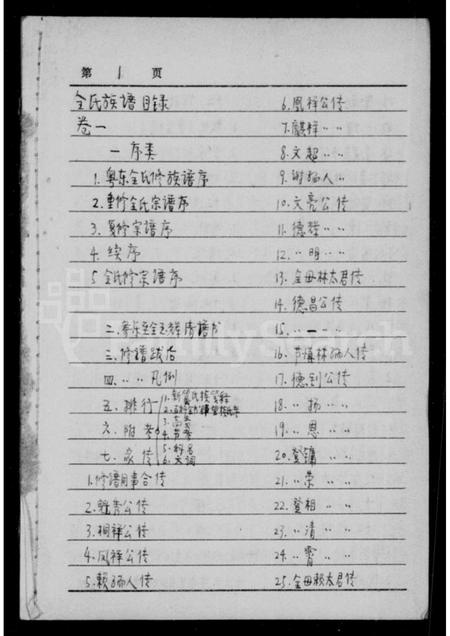 第 1 页
全氏族谱目录
卷一
一 序类
1. 粤东全氏修族谱序
2. 重修全氏宗谱序
3. 复修宗谱序
4. 续序
5 全氏修宗谱序
三. 修谱跋后
四. 〃 〃 凡例
五. 排行
六. 附考
3. 宗
5. 科名
6. 文词
七. 家传
1. 修谱同事合传
3. 桐祥公传
4. 凤祥公传
5. 赖孺人传
6. 凰祥公传
7. 麒祥 〃 〃
8. 文超 〃 〃
9. 谢孺人 〃
10. 文亮公传
11. 德 〃 〃
12. 〃 明 〃 〃
13. 全母林太君传
14. 德昌公传
15. 〃 一 〃 〃
16. 林孺人传
17. 德钊公传
18. 〃 扬 〃 〃
19. 〃 恩 〃 〃
20. 登镛 〃 〃
21. 〃 荣 〃 〃
22. 登相 〃 〃
23. 〃 清 〃 〃
24. 〃 〃 〃
25. 全母赖太君传